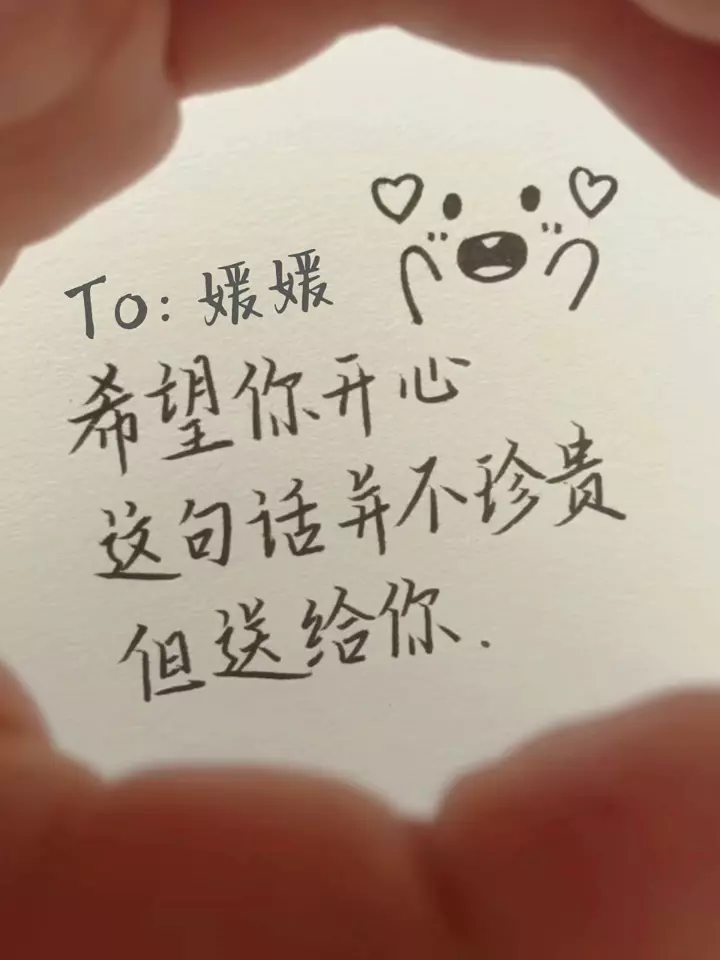 To: 媛媛
希望你开心
这句话并不珍贵
但送给你.